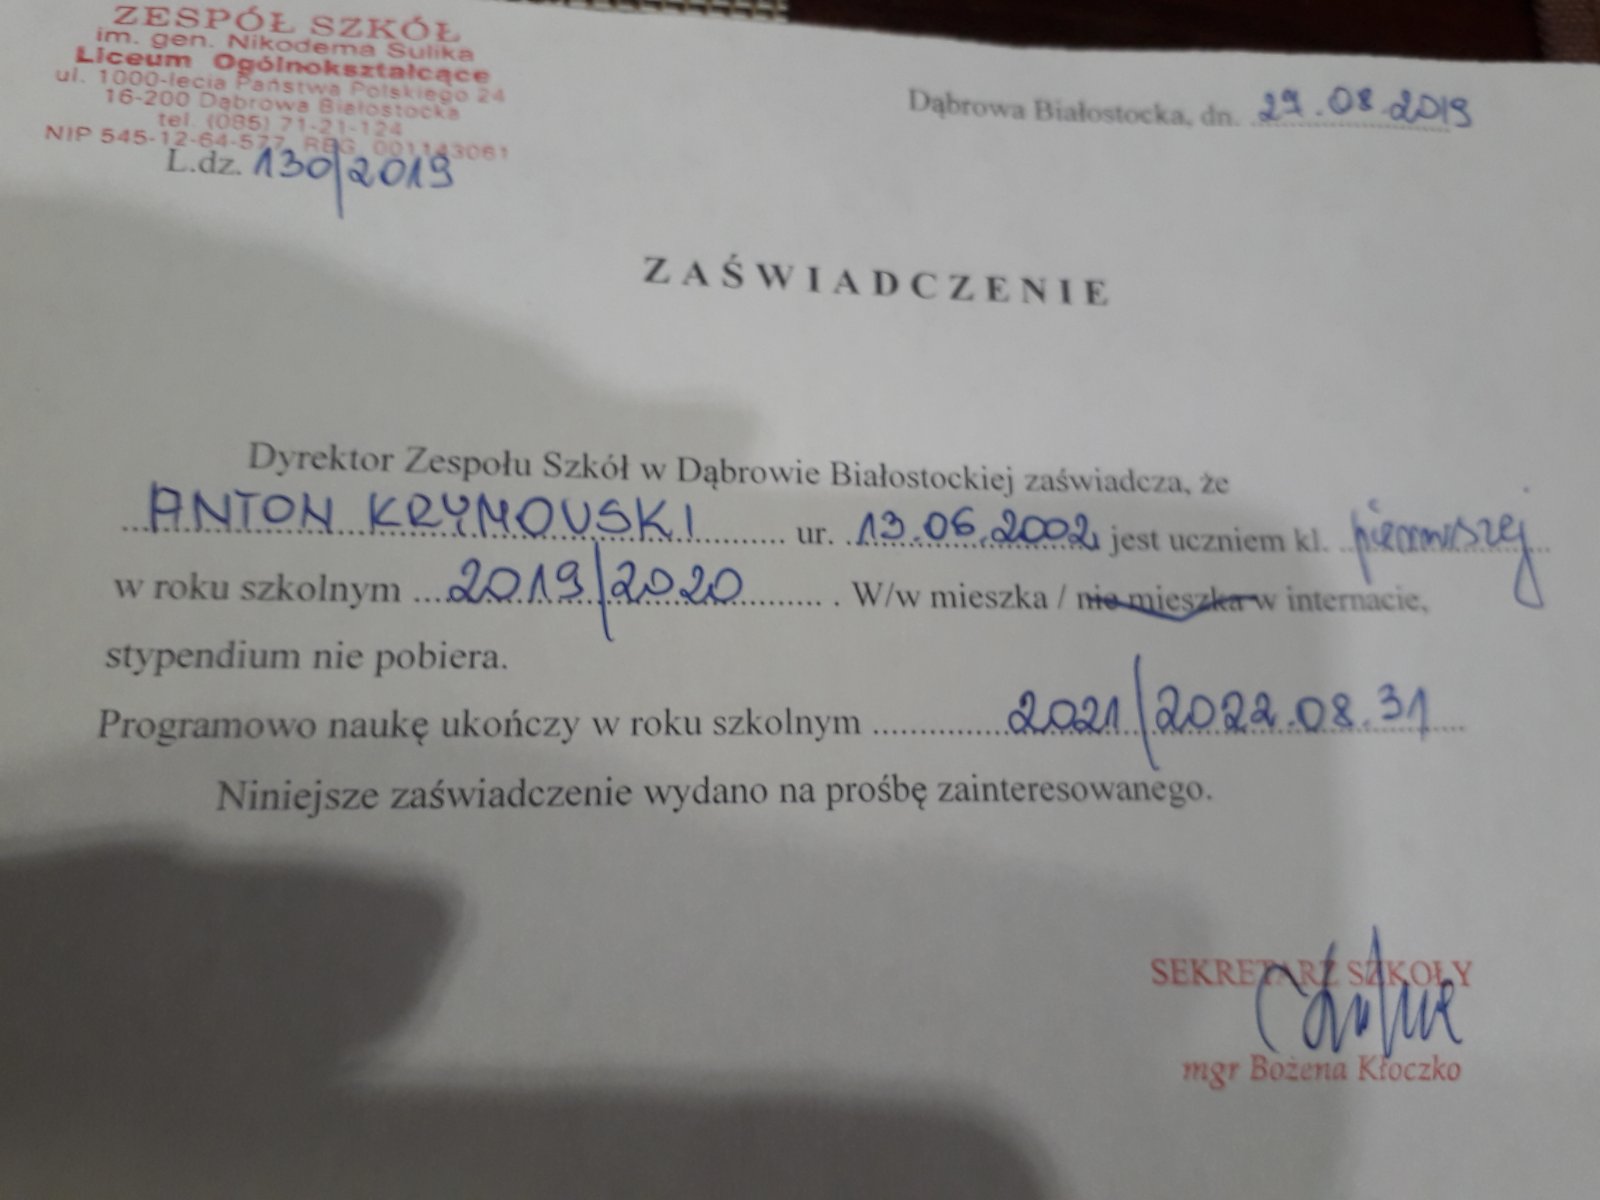 ZESPÓŁ SZKÓŁ
im. gen. Nikodema Sulika
Liceum Ogólnokształcące
ul. 1000-lecia Państwa Polskiego 24
16-200 Dąbrowa Białostocka
tel. (085) 71-21-124
NIP 545-12-64-577, REG. 001143061
L.dz. 130/2019
Dąbrowa Białostocka, dn. 29.08.2019
ZAŚWIADCZENIE
Dyrektor Zespołu Szkół w Dąbrowie Białostockiej zaświadcza, że
ANTON KRYMOUSKI ur. 13.06.2002 jest uczniem kl. pierwszej
w roku szkolnym 2019/2020 . W/w mieszka / nie mieszka w internacie,
stypendium nie pobiera.
Programowo naukę ukończy w roku szkolnym 2021/2022.08.31
Niniejsze zaświadczenie wydano na prośbę zainteresowanego.
SEKRETARZ SZKOŁY
mgr Bożena Kłoczko